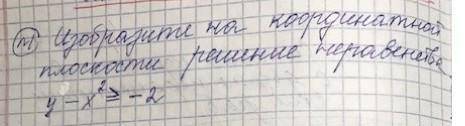 (м) Изобразите на координатной
плоскости решение неравенства
y - x² ≥ -2